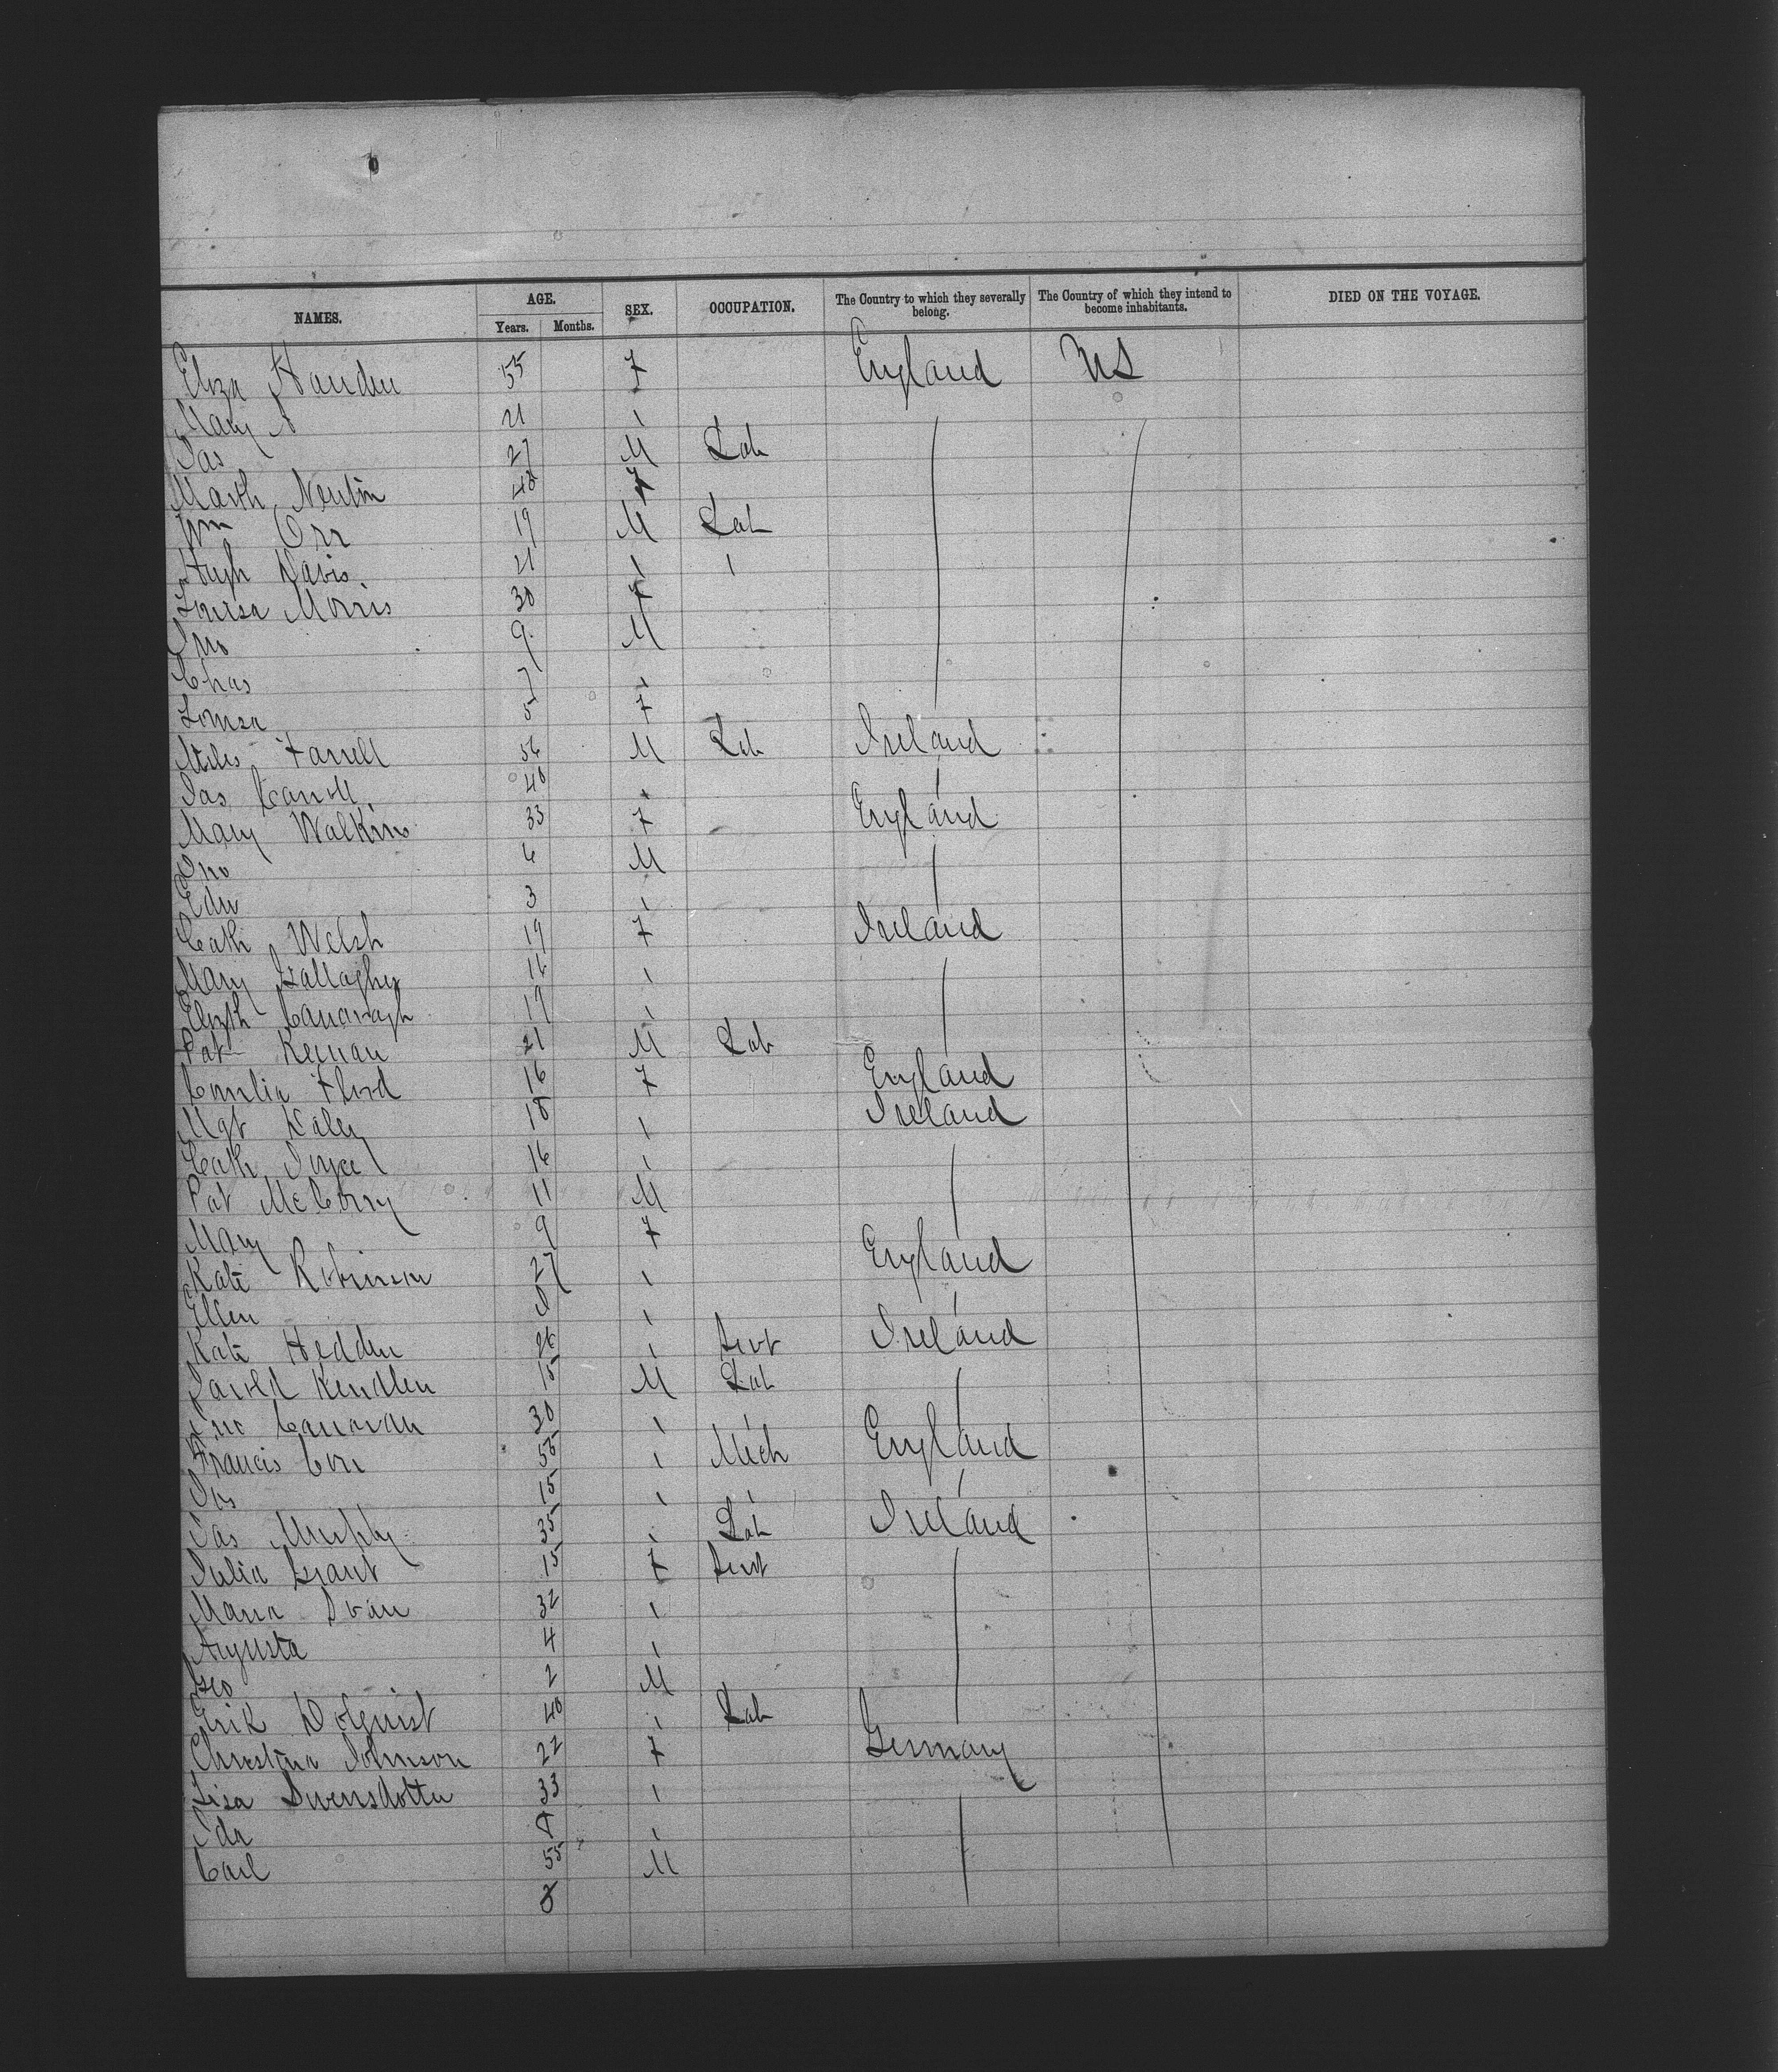 NAMES. AGE. Years. Months. SEX. OCCUPATION. The Country to which they severally belong. The Country of which they intend to become inhabitants. DIED ON THE VOYAGE.
Eliza 55 F England US
Mary A 21 "
Jas 27 M Lab
Marth Newton 48 F
Wm Orr 19 M Lab
Hugh Davis 21 " "
Louisa Morris 30 F
Jno 9 M
Chas 7 "
Louisa 5 F
Miles Farrell 56 M Lab Ireland
Jas Carroll 40 " "
Mary Walkins 33 F England
Jno 6 M
Edw 3 "
Cath Welsh 19 F Ireland
Mary Gallagher 16 "
Elizth Cavanagh 19 "
Pat Keenan 21 M Lab
Flood 16 F England
Mgt Daley 18 " Ireland
Cath Joyce 16 "
Pat McCorry 11 M
Mary 9 F
Kate Robinson 27 " England
Ellen "
Kate Hedden 26 " Servt Ireland
Kendlen 15 M Lab
Jno Canavan 30 " "
Francis 55 " Mech England
Jas 15 " "
Jas Murphy 35 " Lab Ireland
Julia Grant 15 F Servt
Maria 32 "
Augusta 4 "
Geo 2 M
Erik Dolquist 40 " Lab
Christina Johnson 22 F Germany
Lisa Swensdotter 33 "
Ida 8 "
Carl 55 M
8